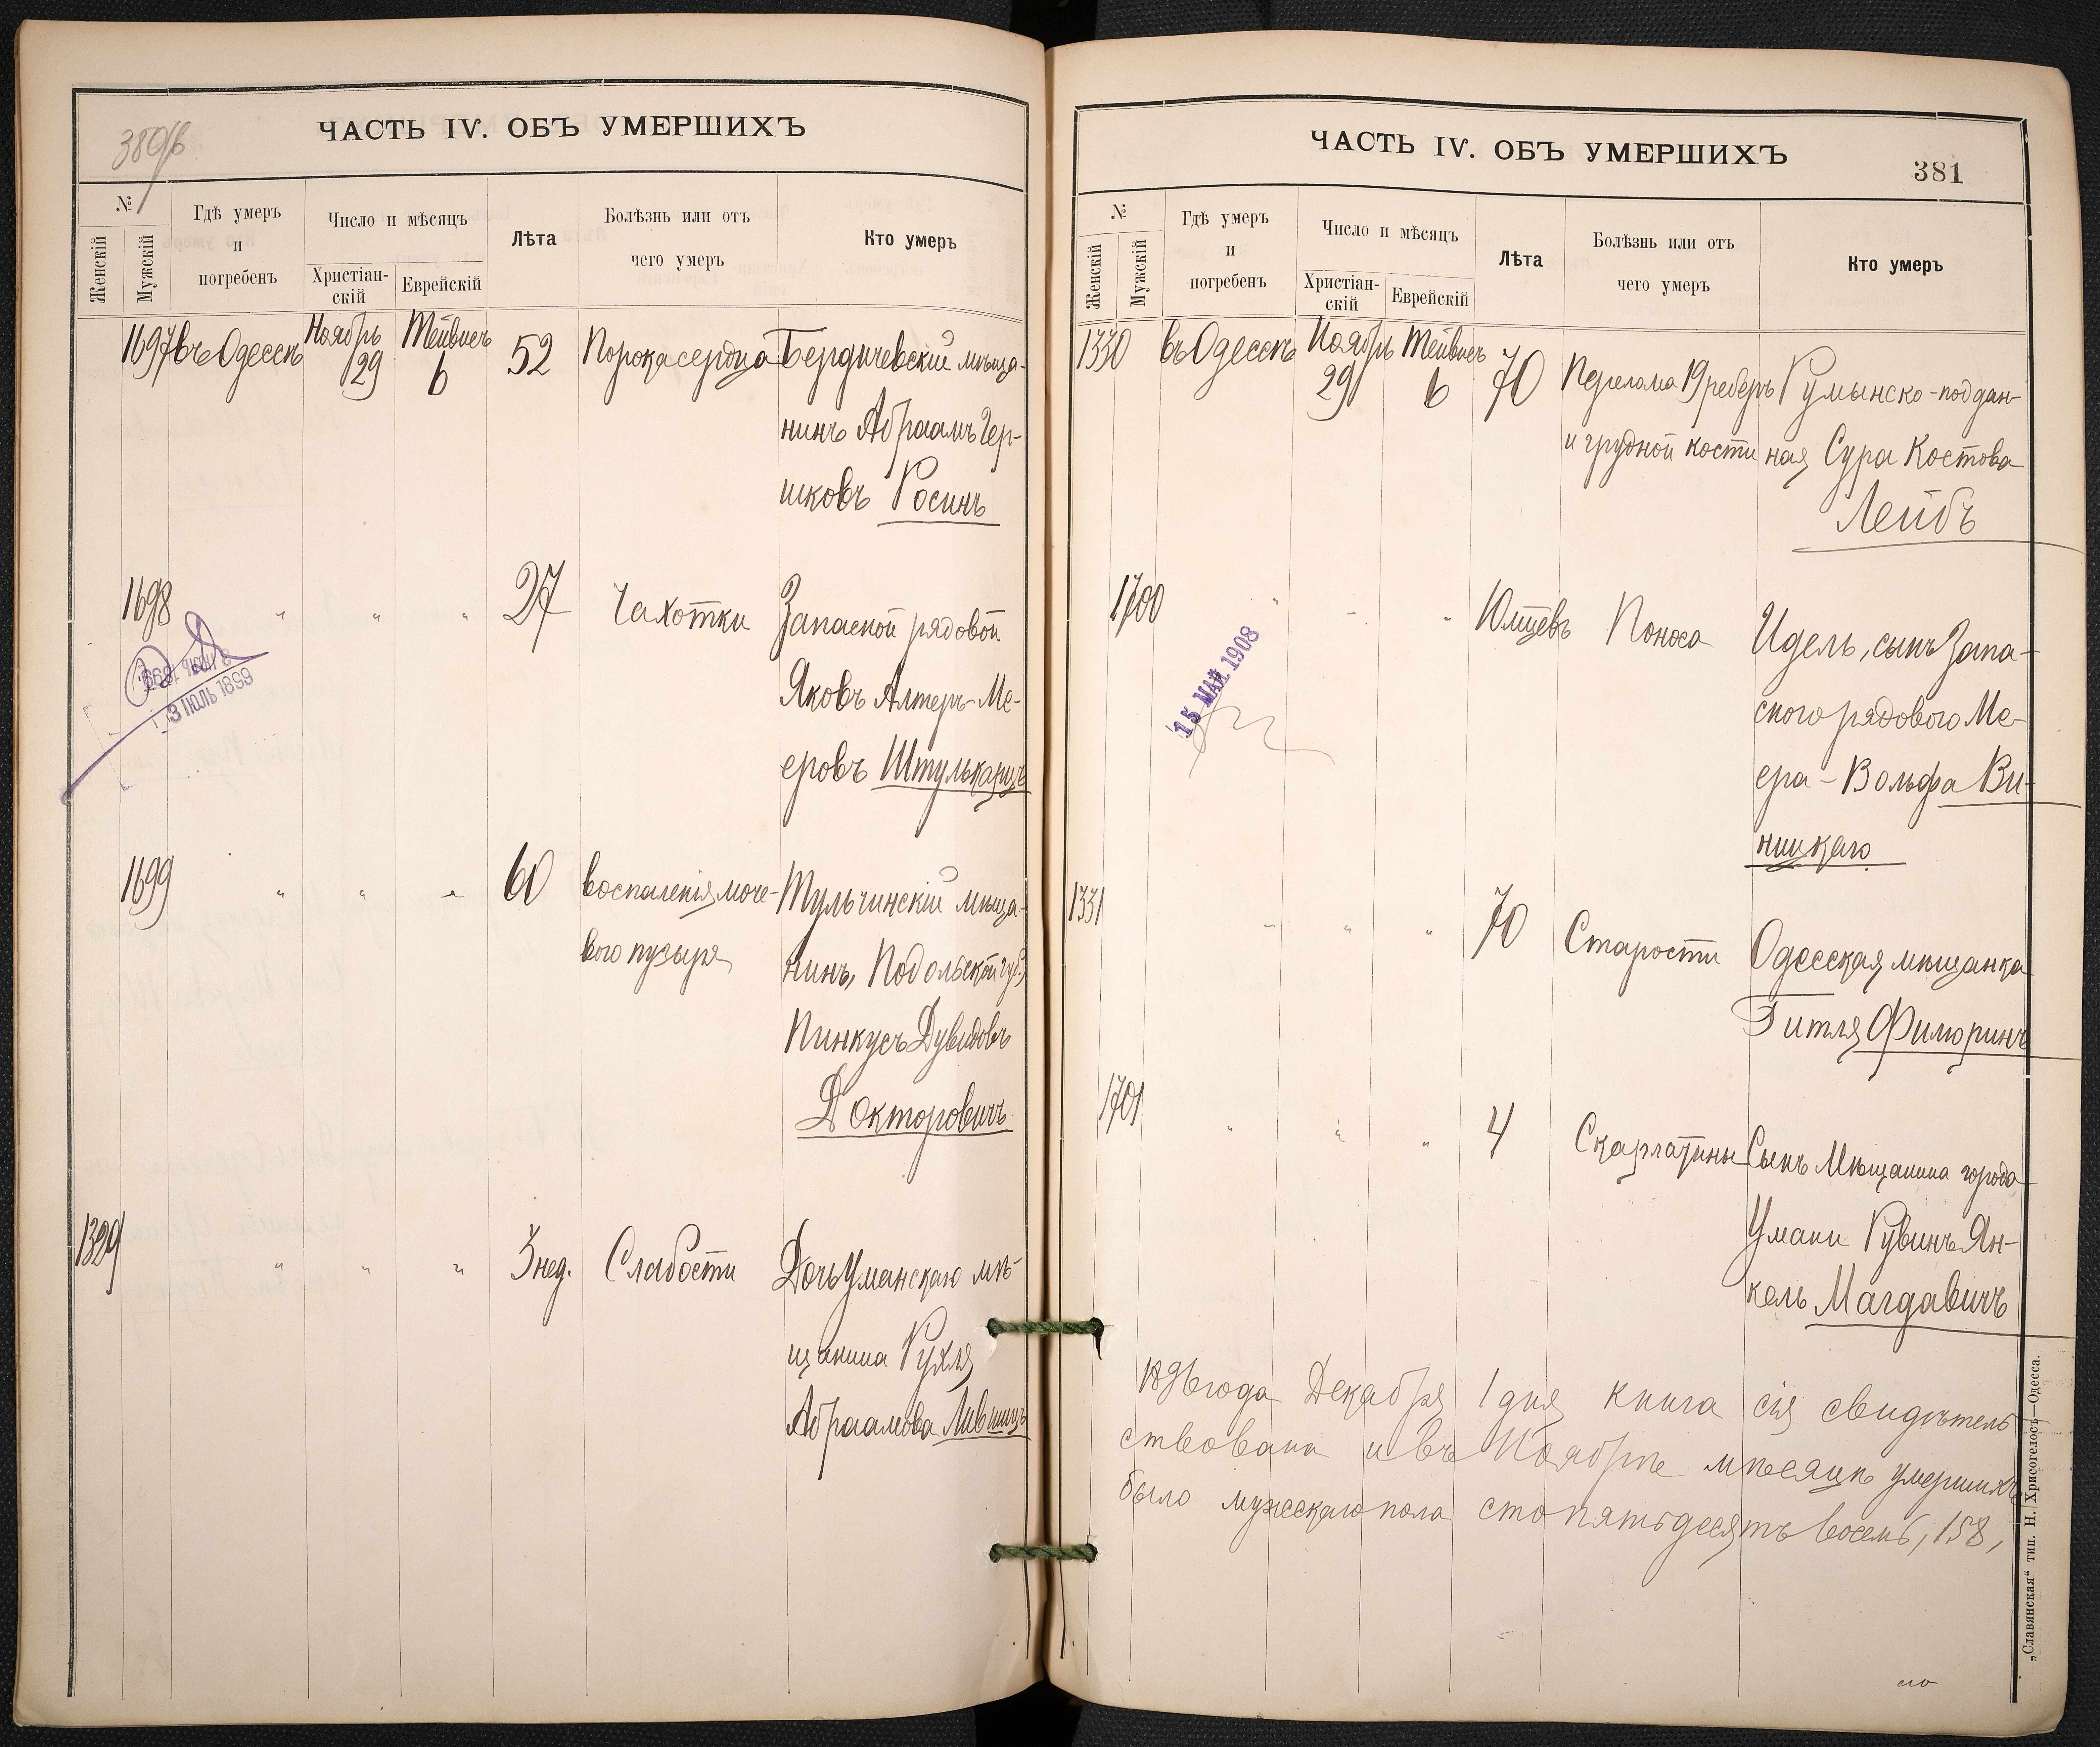 380 об
ЧАСТЬ IV. ОБЪ УМЕРШИХЪ
№
Женскій
Мужскій
Гдѣ умеръ
и
погребенъ
Число и мѣсяцъ
Христіан-
скій
Еврейскій
Лѣта
Болѣзнь или отъ
чего умеръ
Кто умеръ
1697 въ Одессѣ Ноябрь 29 Тейвисъ 6 52 Порока сердца Бердичевскій мѣща-
нинъ Абраамъ Гер-
шковъ Росинъ
1698 " " " 27 Чахотки Запасной рядовой
Яковъ Алтеръ-Ме-
еровъ
3 ІЮЛЬ 1899
1699 " " " 60 воспаленія моче- Тульчинскій мѣща-
вого пузыря нинъ, Подольской губ,
Пинкусъ Дувидовъ
Докторовичъ
1329 " " " 3 нед. Слабости Дочь Уманскаго мѣ-
щанина Рухля
Абраамова Лившицъ
ЧАСТЬ IV. ОБЪ УМЕРШИХЪ
381
№
Женскій
Мужскій
Гдѣ умеръ
и
погребенъ
Число и мѣсяцъ
Христіан-
скій
Еврейскій
Лѣта
Болѣзнь или отъ
чего умеръ
Кто умеръ
1330 въ Одессѣ Ноябрь 29 Тейвисъ 6 70 Перелома 19 реберъ Румынско-поддан-
и грудной кости ная Сура Костова
Лейбъ
1700 " " " 10 мцевъ Поноса Идель, сынъ Запа-
сного рядового Ме-
ера-Вольфа Ви-
ницкаго
15 МАЙ 1908
1331 " " " 70 Старости Одесская мѣщанка
Гитля Фиморинъ
1701 " " " 4 Скарлатины Сынъ Мѣщанина города
Умани Рувинъ Ян-
кель Магдавичъ
1896 года Декабря 1 дня книга сія свидѣтель
ствована и въ Ноябрѣ мѣсяцѣ умершихъ
было мужескаго пола сто пятьдесятъ восемь, 158,
„Славянская“ тип. Н. Хрисогелосъ—Одесса.